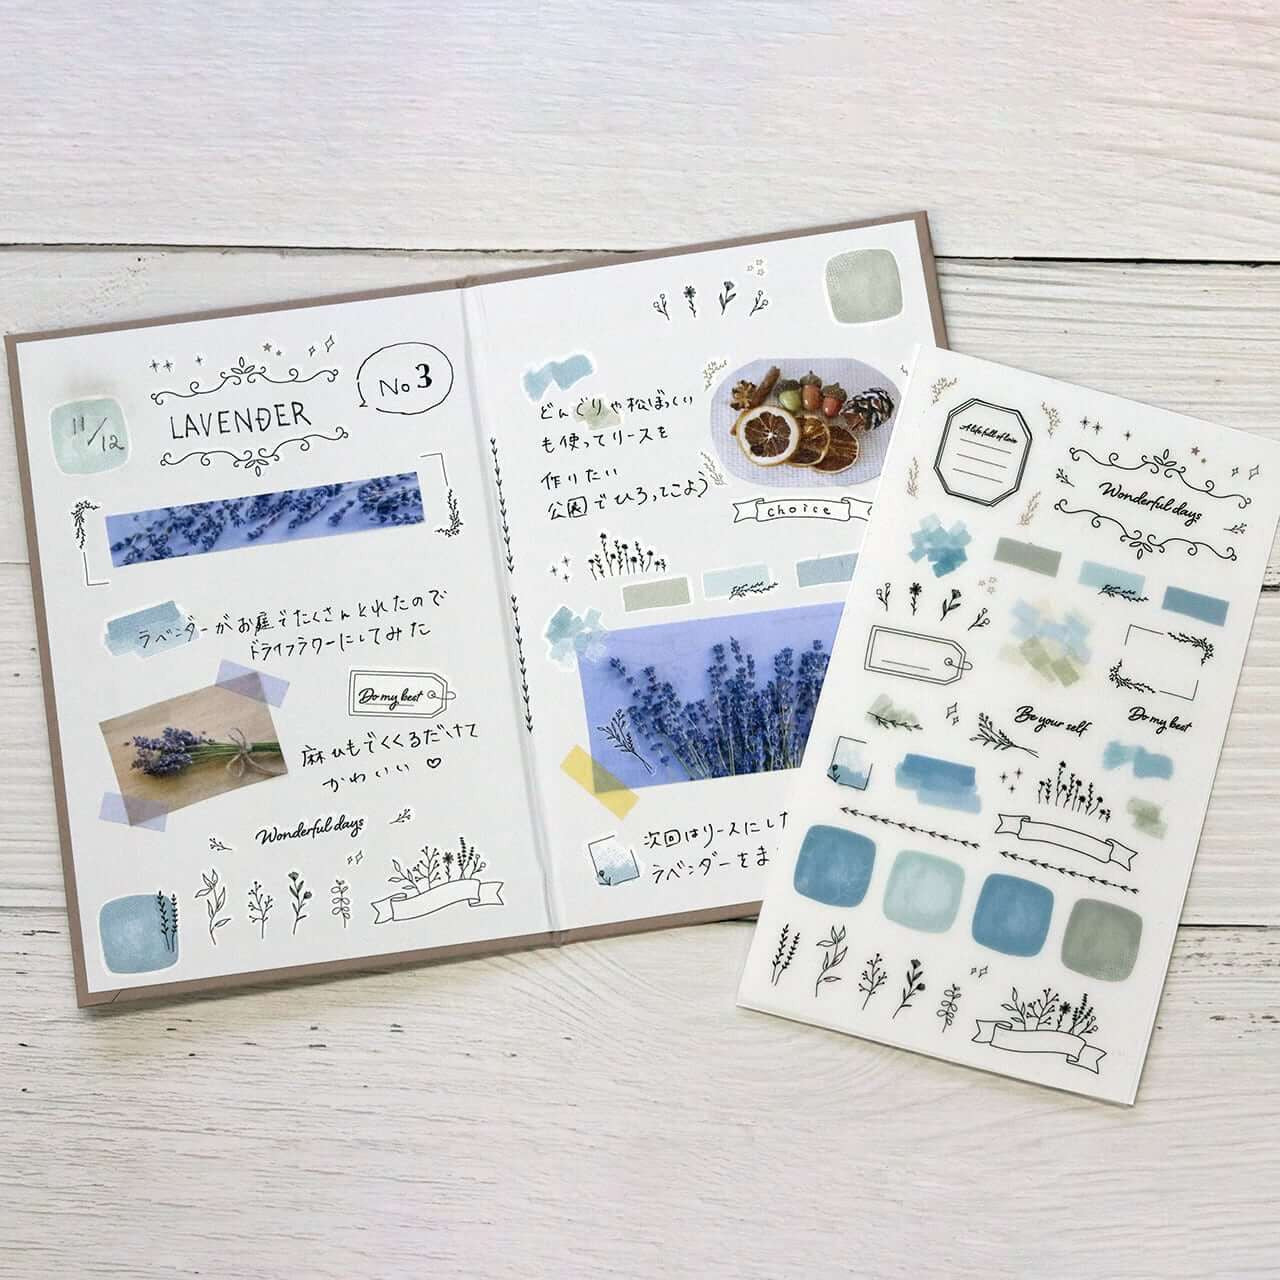 11/12
LAVENDER
No 3
ラベンダーがお庭でたくさんとれたので
ドライフラワーにしてみた
Do my best
麻ひもでくくるだけで
かわいい♡
Wonderful days
どんぐりや松ぼっくり
も使ってリースを
作りたい
公園でひろってこよう
choice
次回はリースにした
ラベンダーをま
A life full of love
Wonderful days
Be your self
Do my best